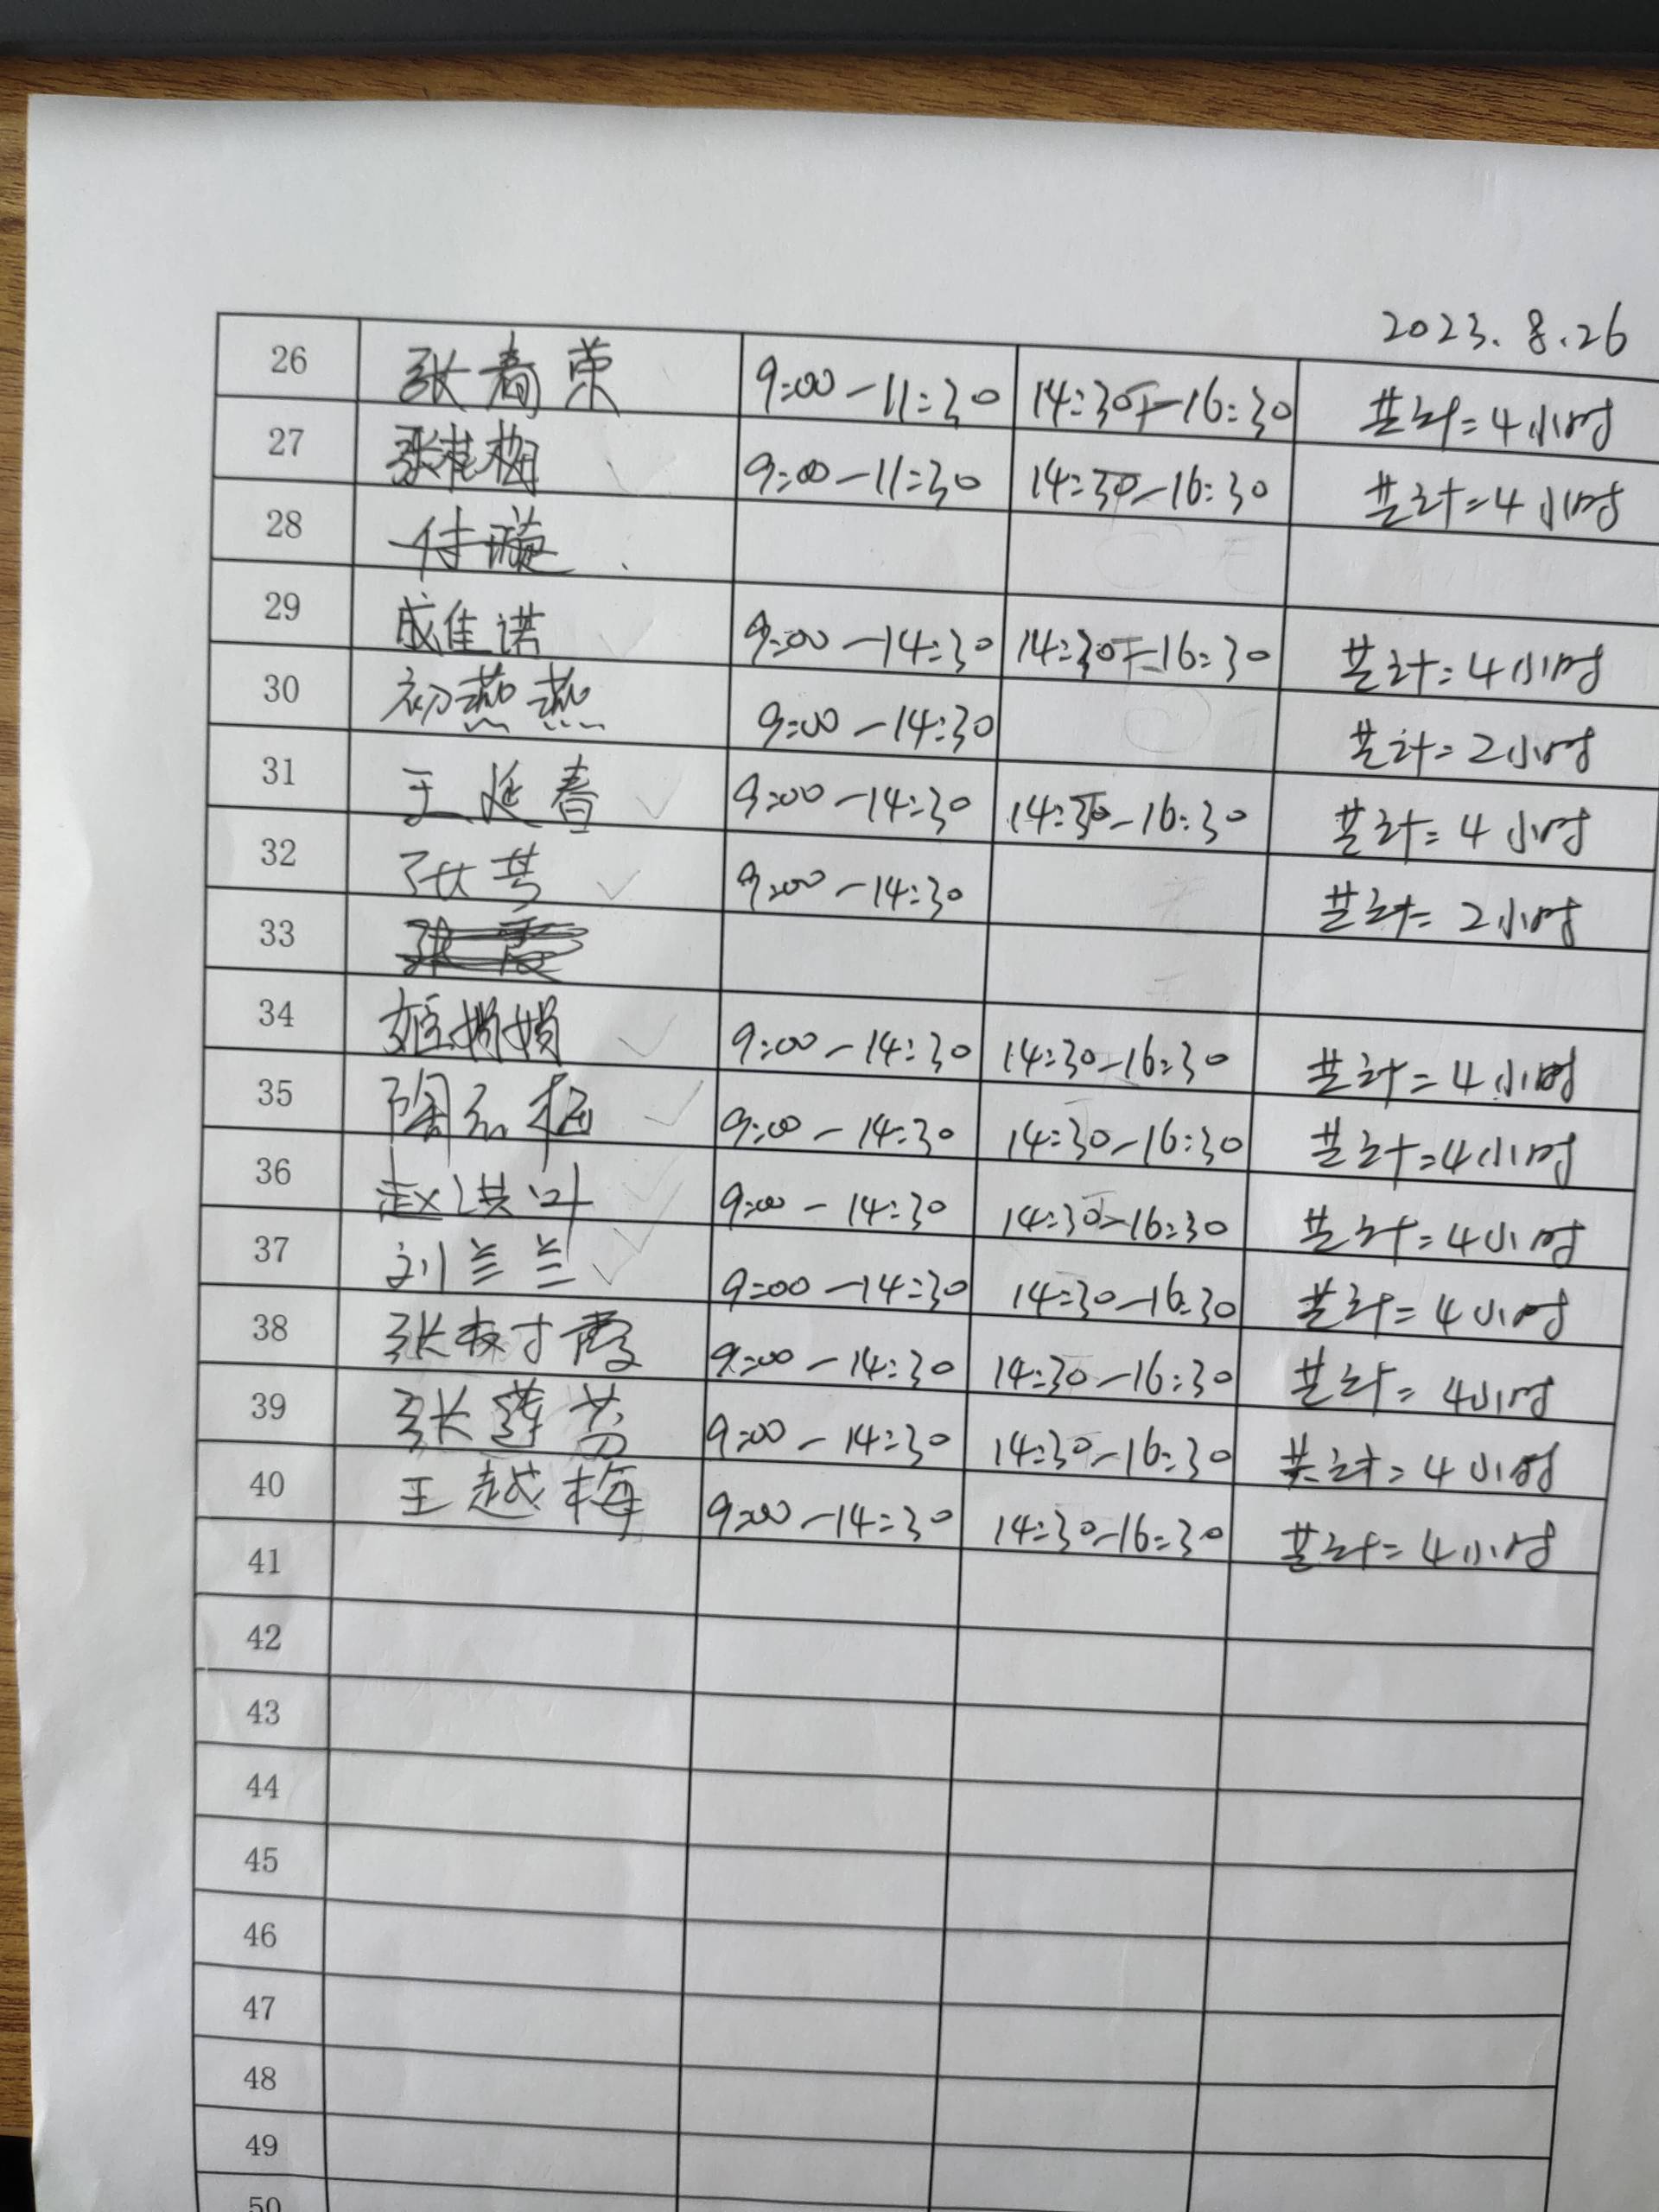 2023.8.26
26 张春荣 9:00-11:30 14:30-16:30 共计=4小时
27 张桂梅 9:00-11:30 14:30-16:30 共计=4小时
28 付璇
29 成佳诺 9:00-14:30 14:30-16:30 共计=4小时
30 初燕燕 9:00-14:30 共计=2小时
31 王延春 9:00-14:30 14:30-16:30 共计=4小时
32 张 9:00-14:30 共计=2小时
33 张霞
34 姬娟娟 9:00-14:30 14:30-16:30 共计=4小时
35 陶 9:00-14:30 14:30-16:30 共计=4小时
36 赵洪叶 9:00-14:30 14:30-16:30 共计=4小时
37 刘兰兰 9:00-14:30 14:30-16:30 共计=4小时
38 张树霞 9:00-14:30 14:30-16:30 共计=4小时
39 张莲芬 9:00-14:30 14:30-16:30 共计=4小时
40 王越梅 9:00-14:30 14:30-16:30 共计=4小时
41
42
43
44
45
46
47
48
49
50